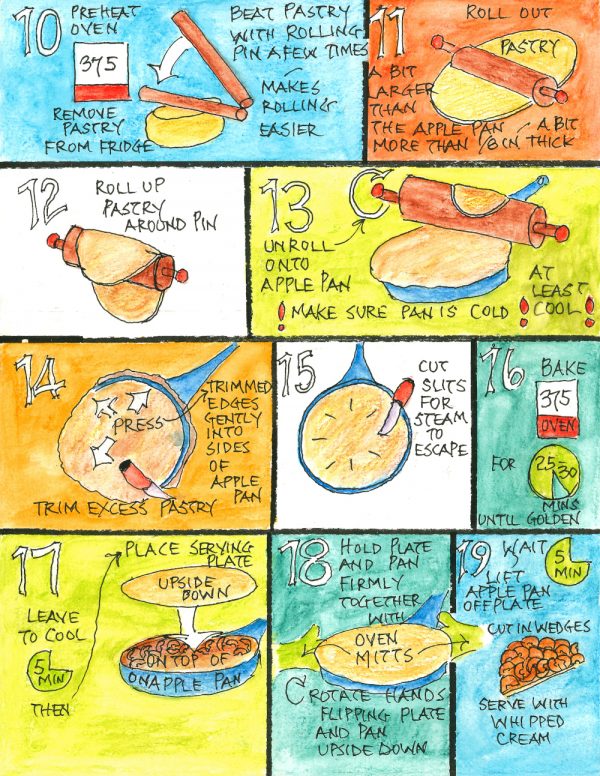 10
PREHEAT
OVEN
375
REMOVE
PASTRY
FROM FRIDGE
BEAT PASTRY
WITH ROLLING
PIN A FEW TIMES
MAKES
ROLLING
EASIER
11
ROLL OUT
PASTRY
A BIT
LARGER
THAN
THE APPLE PAN
A BIT
MORE THAN 1/8 IN THICK
12
ROLL UP
PASTRY
AROUND PIN
13
UNROLL
ONTO
APPLE PAN
! MAKE SURE PAN IS COLD !
AT
LEAST
COOL !
14
PRESS
TRIMMED
EDGES
GENTLY
INTO
SIDES
OF
APPLE
PAN
TRIM EXCESS PASTRY
15
CUT
SLITS
FOR
STEAM
TO
ESCAPE
16
BAKE
375
OVEN
FOR
25-30
MINS
UNTIL GOLDEN
17
PLACE SERVING
PLATE
UPSIDE
DOWN
ON TOP OF
APPLE PAN
LEAVE
TO COOL
5
MIN
THEN
18
HOLD PLATE
AND PAN
FIRMLY
TOGETHER
WITH
OVEN
MITTS
ROTATE HANDS
FLIPPING PLATE
AND PAN
UPSIDE DOWN
19
WAIT
5
MIN
LIFT
APPLE PAN
OFF PLATE
CUT IN WEDGES
SERVE WITH
WHIPPED
CREAM